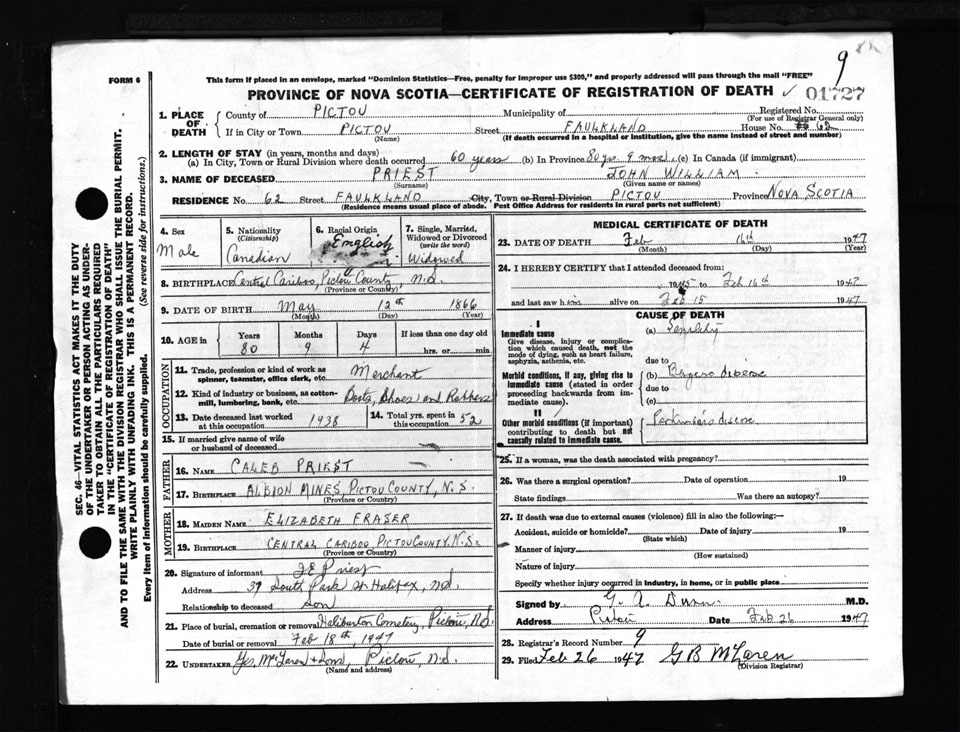 FORM 6
9
This form if placed in an envelope, marked "Dominion Statistics—Free, penalty for improper use $300," and properly addressed will pass through the mail "FREE"
PROVINCE OF NOVA SCOTIA—CERTIFICATE OF REGISTRATION OF DEATH ✓ 01727
1. PLACE OF DEATH
County of PICTOU Municipality of Registered No.
(For use of Registrar General only)
If in City or Town PICTOU Street FAULKLAND House No. 62
(Name) (If death occurred in a hospital or institution, give the name instead of street and number)
2. LENGTH OF STAY (in years, months and days)
(a) In City, Town or Rural Division where death occurred 60 years (b) In Province 80 yrs 9 mos. (c) In Canada (if immigrant)
3. NAME OF DECEASED PRIEST JOHN WILLIAM
(Surname) (Given name or names)
RESIDENCE No. 62 Street FAULKLAND City, Town or Rural Division PICTOU Province NOVA SCOTIA
(Residence means usual place of abode. Post Office Address for residents in rural parts not sufficient)
4. Sex
Male
5. Nationality
(Citizenship)
Canadian
6. Racial Origin
English
7. Single, Married, Widowed or Divorced
(write the word)
Widowed
8. BIRTHPLACE Central Cariboo, Pictou County, N.S.
(Province or Country)
9. DATE OF BIRTH May 12th 1866
(Month) (Day) (Year)
10. AGE in
Years Months Days If less than one day old
80 9 4 hrs. or min
OCCUPATION
11. Trade, profession or kind of work as spinner, teamster, office clerk, etc. Merchant
12. Kind of industry or business, as cotton-mill, lumbering, bank, etc. Boots, Shoes and Rubbers
13. Date deceased last worked at this occupation 1938
14. Total yrs. spent in this occupation 52
15. If married give name of wife or husband of deceased
FATHER
16. NAME CALEB PRIEST
17. BIRTHPLACE ALBION MINES, PICTOU COUNTY, N.S.
(Province or Country)
MOTHER
18. MAIDEN NAME ELIZABETH FRASER
19. BIRTHPLACE CENTRAL CARIBOO, PICTOU COUNTY, N.S.
(Province or Country)
20. Signature of informant J E Priest
Address 39 South Park St Halifax, N.S.
Relationship to deceased Son
21. Place of burial, cremation or removal Haliburton Cemetery, Pictou, N.S.
Date of burial or removal Feb 18th, 1947
22. UNDERTAKER Geo. McLaren & Sons, Pictou, N.S.
(Name and address)
MEDICAL CERTIFICATE OF DEATH
23. DATE OF DEATH Feb 16th 1947
(Month) (Day) (Year)
24. I HEREBY CERTIFY that I attended deceased from:
1945 to Feb 16th 1947
and last saw him alive on Feb 15 1947
CAUSE OF DEATH
I
Immediate cause
Give disease, injury or complication which caused death, not the mode of dying, such as heart failure, asphyxia, asthenia, etc.
(a) Senility
due to
Morbid conditions, if any, giving rise to immediate cause (stated in order proceeding backwards from immediate cause).
(b) disease
due to
(c)
II
Other morbid conditions (if important) contributing to death but not causally related to immediate cause.
Parkinson's disease
25. If a woman, was the death associated with pregnancy?
26. Was there a surgical operation? Date of operation 19
State findings Was there an autopsy?
27. If death was due to external causes (violence) fill in also the following:—
Accident, suicide or homicide? Date of injury 19
(State which)
Manner of injury
(How sustained)
Nature of injury
Specify whether injury occurred in industry, in home, or in public place
Signed by G. A. Dunn M.D.
Address Pictou Date Feb 26 1947
28. Registrar's Record Number 9
29. Filed Feb 26 1947 G B McLaren
(Division Registrar)
SEC. 46—VITAL STATISTICS ACT MAKES IT THE DUTY
OF THE UNDERTAKER OR PERSON ACTING AS UNDERTAKER TO OBTAIN ALL THE PARTICULARS REQUIRED
IN THE "CERTIFICATE OF REGISTRATION OF DEATH"
AND TO FILE THE SAME WITH THE DIVISION REGISTRAR WHO SHALL ISSUE THE BURIAL PERMIT.
WRITE PLAINLY WITH UNFADING INK. THIS IS A PERMANENT RECORD.
Every item of information should be carefully supplied. (See reverse side for instructions.)